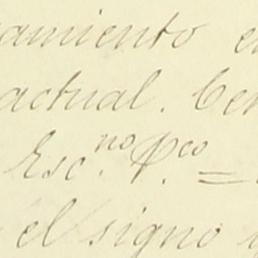 amiento e
actual. Cer
Esc.no P.co =
el signo